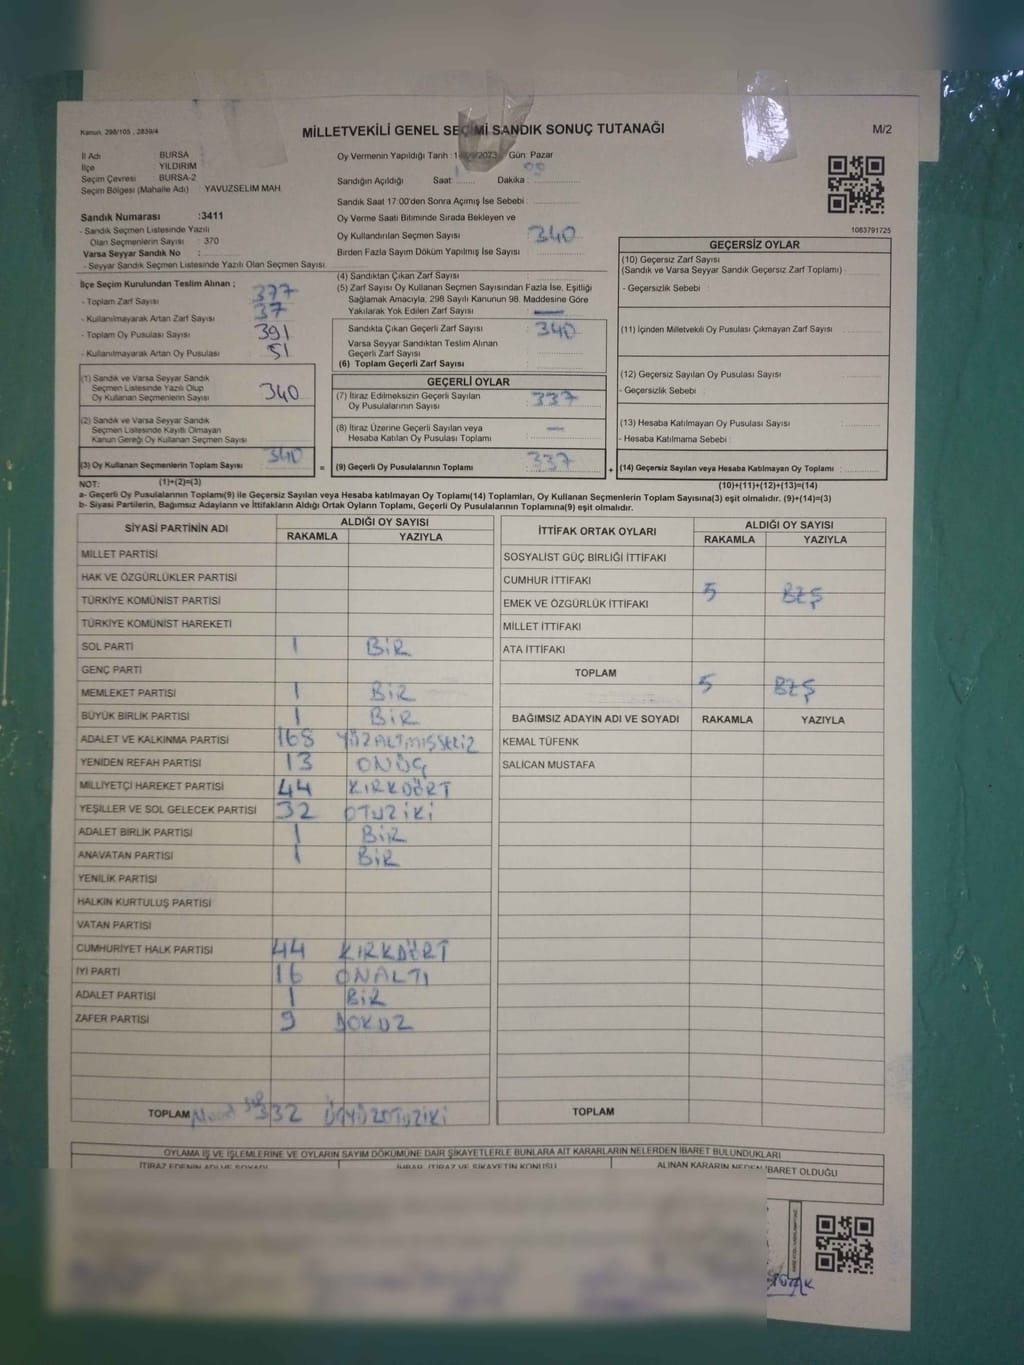 Kanun. 298/105 , 2839/4
MİLLETVEKİLİ GENEL SEÇİMİ SANDIK SONUÇ TUTANAĞI
M/2
İl Adı BURSA
İlçe YILDIRIM
Seçim Çevresi BURSA-2
Seçim Bölgesi (Mahalle Adı) YAVUZSELIM MAH
Oy Vermenin Yapıldığı Tarih : Gün: Pazar
Sandığın Açıldığı Saat: Dakika :
Sandık Saat 17.00'den Sonra Açımış İse Sebebi :
Oy Verme Saati Bitiminde Sırada Bekleyen ve
Oy Kullandırılan Seçmen Sayısı : 340
Birden Fazla Sayım Döküm Yapılmış İse Sayısı :
1083791725
Sandık Numarası :3411
- Sandık Seçmen Listesinde Yazılı
Olan Seçmenlerin Sayısı : 370
Varsa Seyyar Sandık No :
- Seyyar Sandık Seçmen Listesinde Yazılı Olan Seçmen Sayısı:
İlçe Seçim Kurulundan Teslim Alınan ;
- Toplam Zarf Sayısı : 377
- Kullanılmayarak Artan Zarf Sayısı : 37
- Toplam Oy Pusulası Sayısı : 391
- Kullanılmayarak Artan Oy Pusulası : 51
(1) Sandık ve Varsa Seyyar Sandık
Seçmen Listesinde Yazılı Olup
Oy Kullanan Seçmenlerin Sayısı 340
(2) Sandık ve Varsa Seyyar Sandık
Seçmen Listesinde Kayıtlı Olmayan
Kanun Gereği Oy Kullanan Seçmen Sayısı
(3) Oy Kullanan Seçmenlerin Toplam Sayısı 340
(1)+(2)=(3)
(4) Sandıktan Çıkan Zarf Sayısı :
(5) Zarf Sayısı Oy Kullanan Seçmen Sayısından Fazla İse, Eşitliği
Sağlamak Amacıyla, 298 Sayılı Kanunun 98. Maddesine Göre
Yakılarak Yok Edilen Zarf Sayısı : —
Sandıkta Çıkan Geçerli Zarf Sayısı : 340
Varsa Seyyar Sandıktan Teslim Alınan
Geçerli Zarf Sayısı
(6) Toplam Geçerli Zarf Sayısı
GEÇERLİ OYLAR
(7) İtiraz Edilmeksizin Geçerli Sayılan
Oy Pusulalarının Sayısı : 337
(8) İtiraz Üzerine Geçerli Sayılan veya
Hesaba Katılan Oy Pusulası Toplamı : —
= (9) Geçerli Oy Pusulalarının Toplamı : 337 +
GEÇERSİZ OYLAR
(10) Geçersiz Zarf Sayısı
(Sandık ve Varsa Seyyar Sandık Geçersiz Zarf Toplamı) :
- Geçersizlik Sebebi :
(11) İçinden Milletvekili Oy Pusulası Çıkmayan Zarf Sayısı :
(12) Geçersiz Sayılan Oy Pusulası Sayısı :
- Geçersizlik Sebebi :
(13) Hesaba Katılmayan Oy Pusulası Sayısı :
- Hesaba Katılmama Sebebi :
(14) Geçersiz Sayılan veya Hesaba Katılmayan Oy Toplamı :
(10)+(11)+(12)+(13)=(14)
NOT:
a- Geçerli Oy Pusulalarının Toplamı(9) ile Geçersiz Sayılan veya Hesaba katılmayan Oy Toplamı(14) Toplamları, Oy Kullanan Seçmenlerin Toplam Sayısına(3) eşit olmalıdır. (9)+(14)=(3)
b- Siyasi Partilerin, Bağımsız Adayların ve İttifakların Aldığı Ortak Oyların Toplamı, Geçerli Oy Pusulalarının Toplamına(9) eşit olmalıdır.
SİYASİ PARTİNİN ADI ALDIĞI OY SAYISI
RAKAMLA YAZIYLA
MİLLET PARTİSİ
HAK VE ÖZGÜRLÜKLER PARTİSİ
TÜRKİYE KOMÜNİST PARTİSİ
TÜRKİYE KOMÜNİST HAREKETİ
SOL PARTİ 1 BİR
GENÇ PARTİ
MEMLEKET PARTİSİ 1 BİR
BÜYÜK BİRLİK PARTİSİ 1 BİR
ADALET VE KALKINMA PARTİSİ 168 YÜZALTMIŞSEKİZ
YENİDEN REFAH PARTİSİ 13 ONÜÇ
MİLLİYETÇİ HAREKET PARTİSİ 44 KIRKDÖRT
YEŞİLLER VE SOL GELECEK PARTİSİ 32 OTUZİKİ
ADALET BİRLİK PARTİSİ 1 BİR
ANAVATAN PARTİSİ 1 BİR
YENİLİK PARTİSİ
HALKIN KURTULUŞ PARTİSİ
VATAN PARTİSİ
CUMHURİYET HALK PARTİSİ 44 KIRKDÖRT
İYİ PARTİ 16 ONALTI
ADALET PARTİSİ 1 BİR
ZAFER PARTİSİ 9 DOKUZ
TOPLAM 332 ÜÇYÜZOTUZİKİ
İTTİFAK ORTAK OYLARI ALDIĞI OY SAYISI
RAKAMLA YAZIYLA
SOSYALİST GÜÇ BİRLİĞİ İTTİFAKI
CUMHUR İTTİFAKI 5 BEŞ
EMEK VE ÖZGÜRLÜK İTTİFAKI
MİLLET İTTİFAKI
ATA İTTİFAKI
TOPLAM 5 BEŞ
BAĞIMSIZ ADAYIN ADI VE SOYADI RAKAMLA YAZIYLA
KEMAL TÜFENK
SALİCAN MUSTAFA
TOPLAM
OYLAMA İŞ VE İŞLEMLERİNE VE OYLARIN SAYIM DÖKÜMÜNE DAİR ŞİKAYETLERLE BUNLARA AİT KARARLARIN NELERDEN İBARET BULUNDUKLARI
İTİRAZ EDENİN ADI VE SOYADI İHBAR, İTİRAZ VE ŞİKAYETİN KONUSU ALINAN KARARIN NEDEN İBARET OLDUĞU